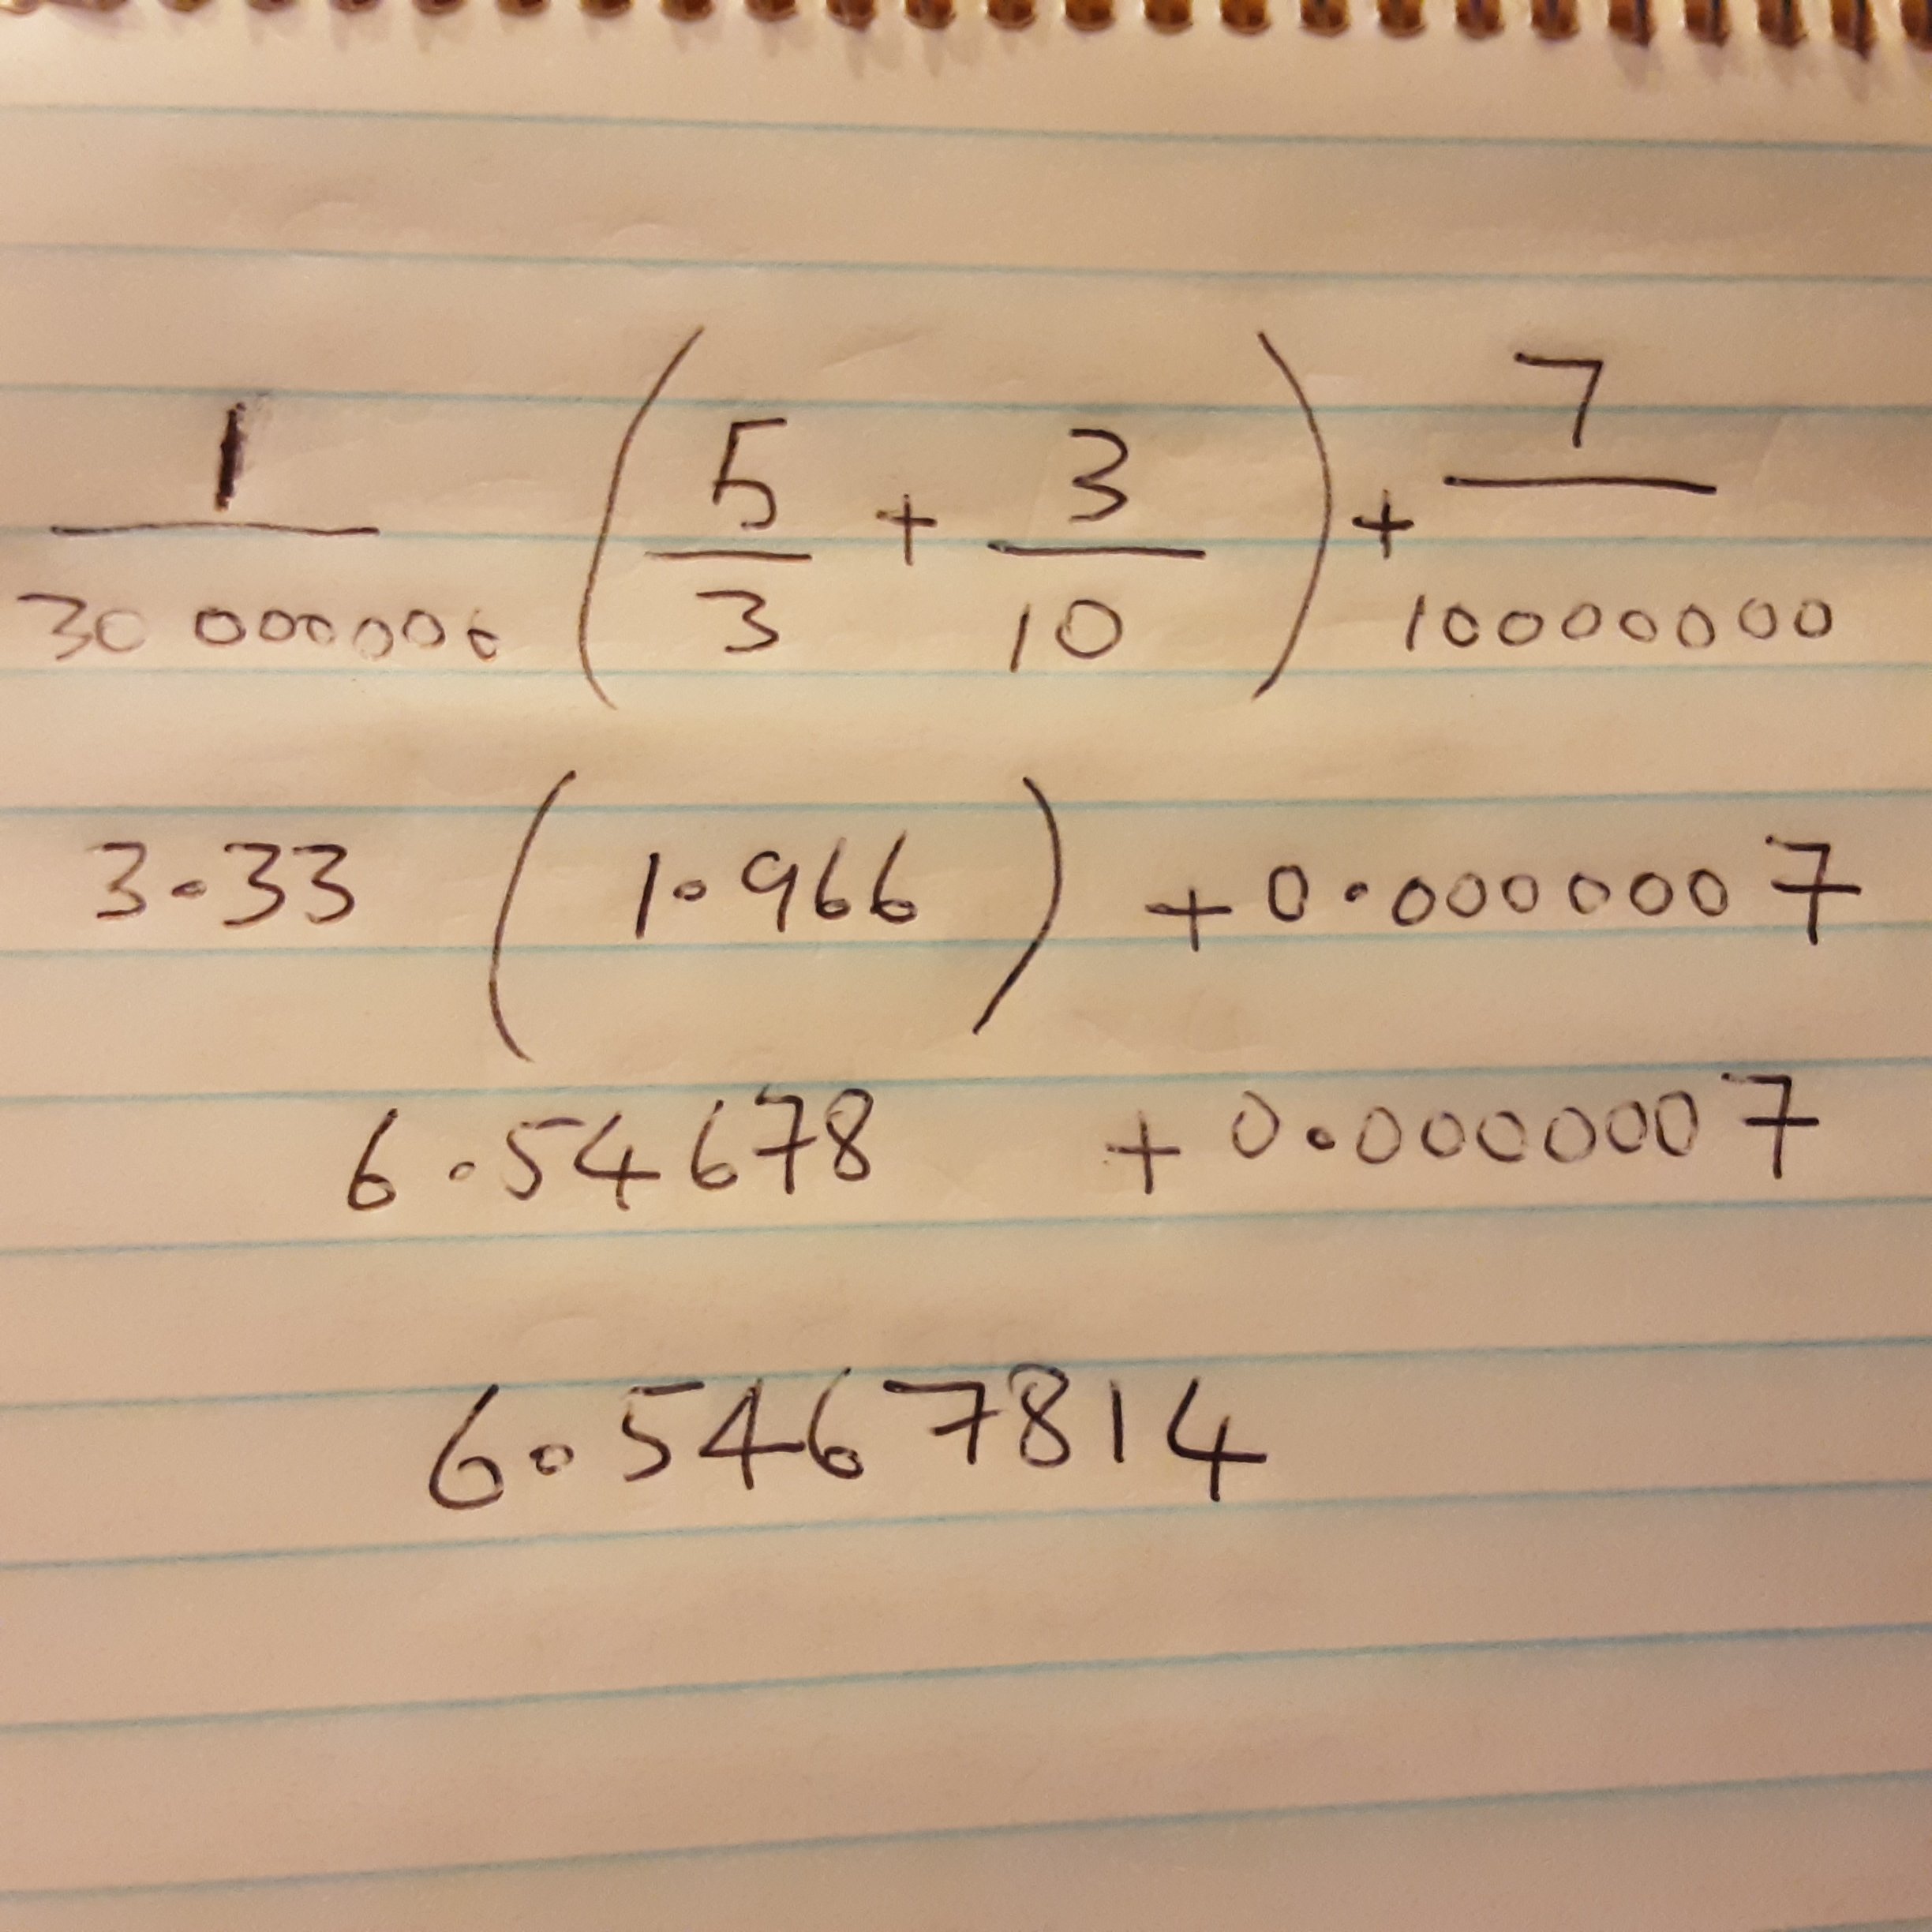 1/30 000000 (5/3 + 3/10) + 7/10000000
3.33 (1.966) + 0.0000007
6.54678 + 0.0000007
6.5467814